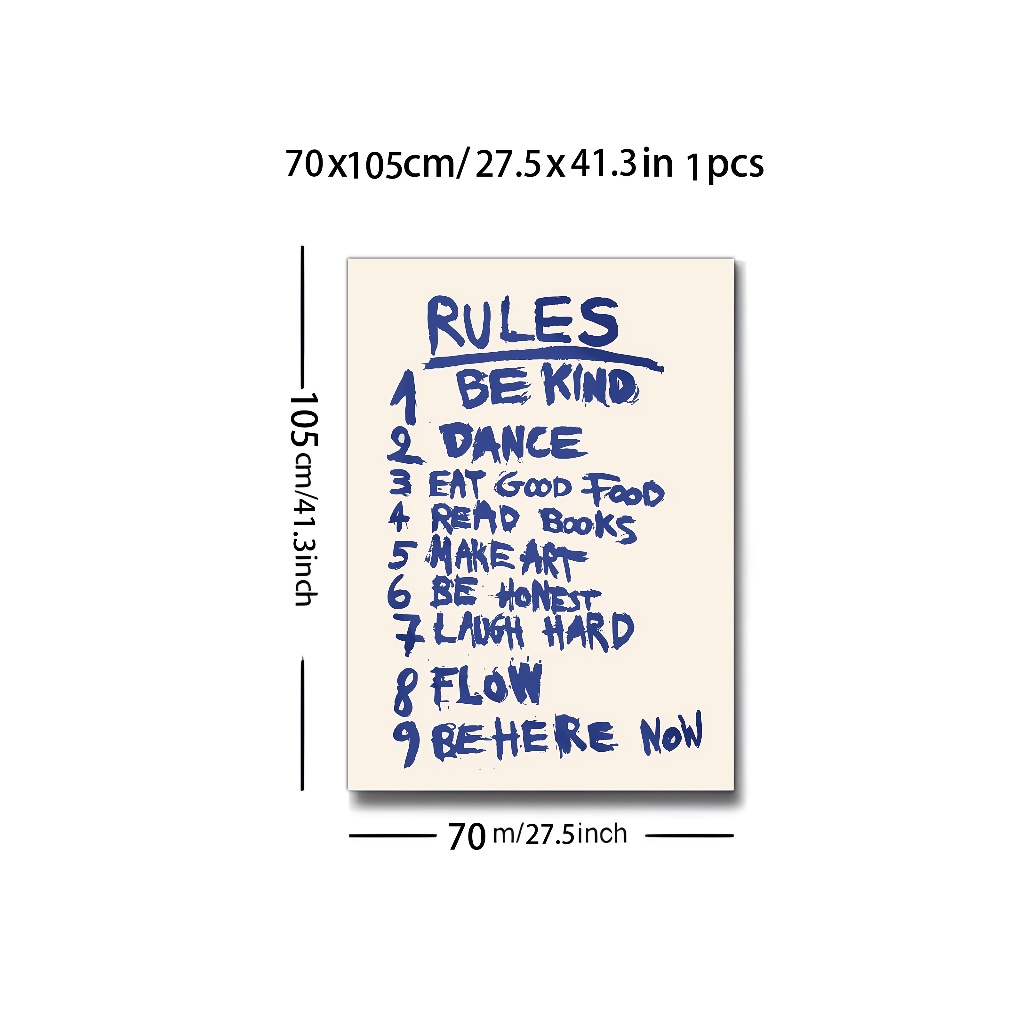 70x105cm/27.5x41.3in 1pcs
RULES
1 BE KIND
2 DANCE
3 EAT GOOD FOOD
4 READ BOOKS
5 MAKE ART
6 BE HONEST
7 LAUGH HARD
8 FLOW
9 BE HERE NOW
105cm/41.3inch
70 m/27.5inch